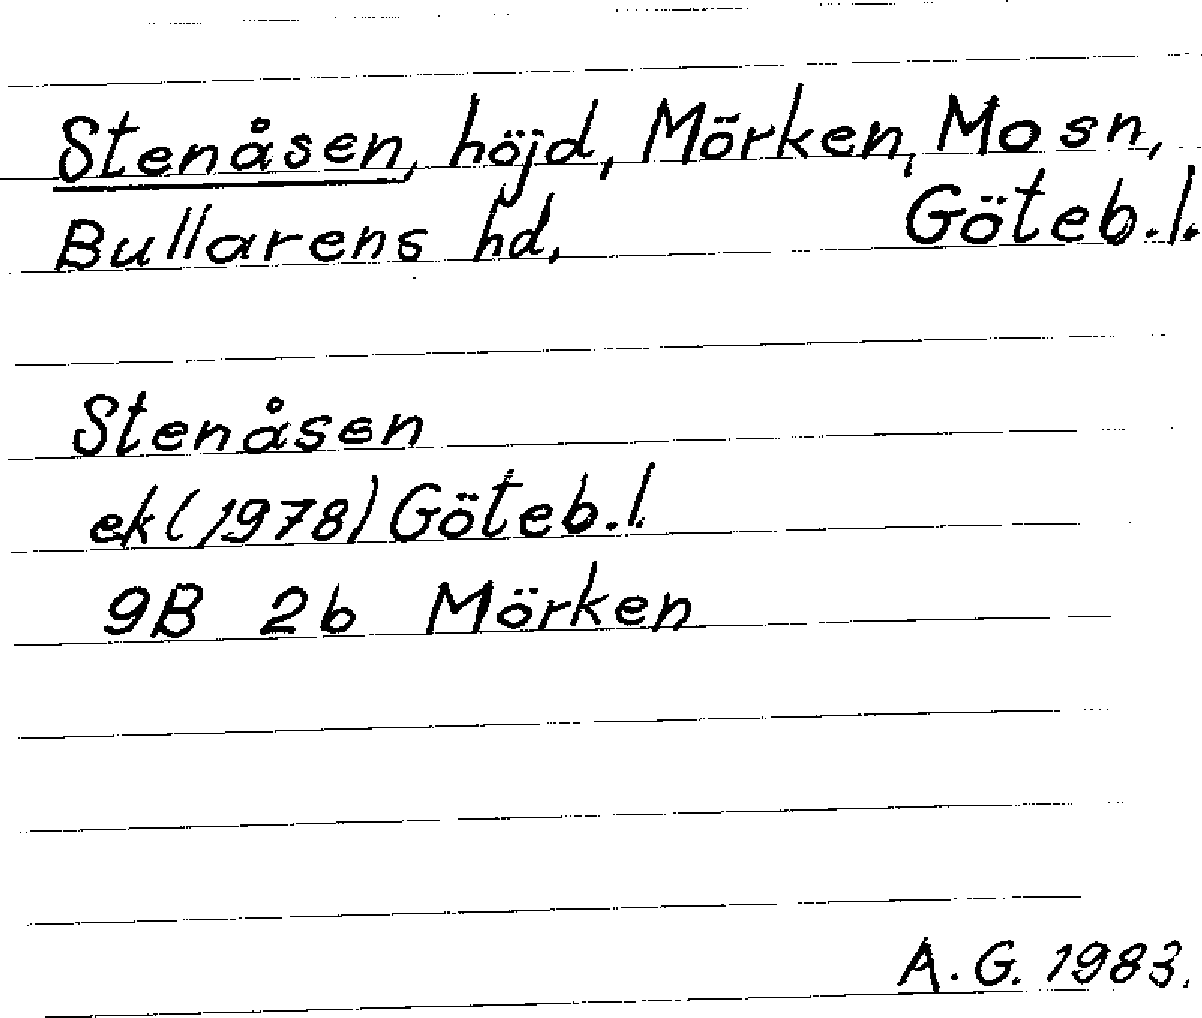 Stenåsen, höjd, Mörken, Mo sn,
Bullarens hd, Göteb.l.
Stenåsen
ek (1978) Göteb.l.
9B 2b Mörken
A.G. 1983.